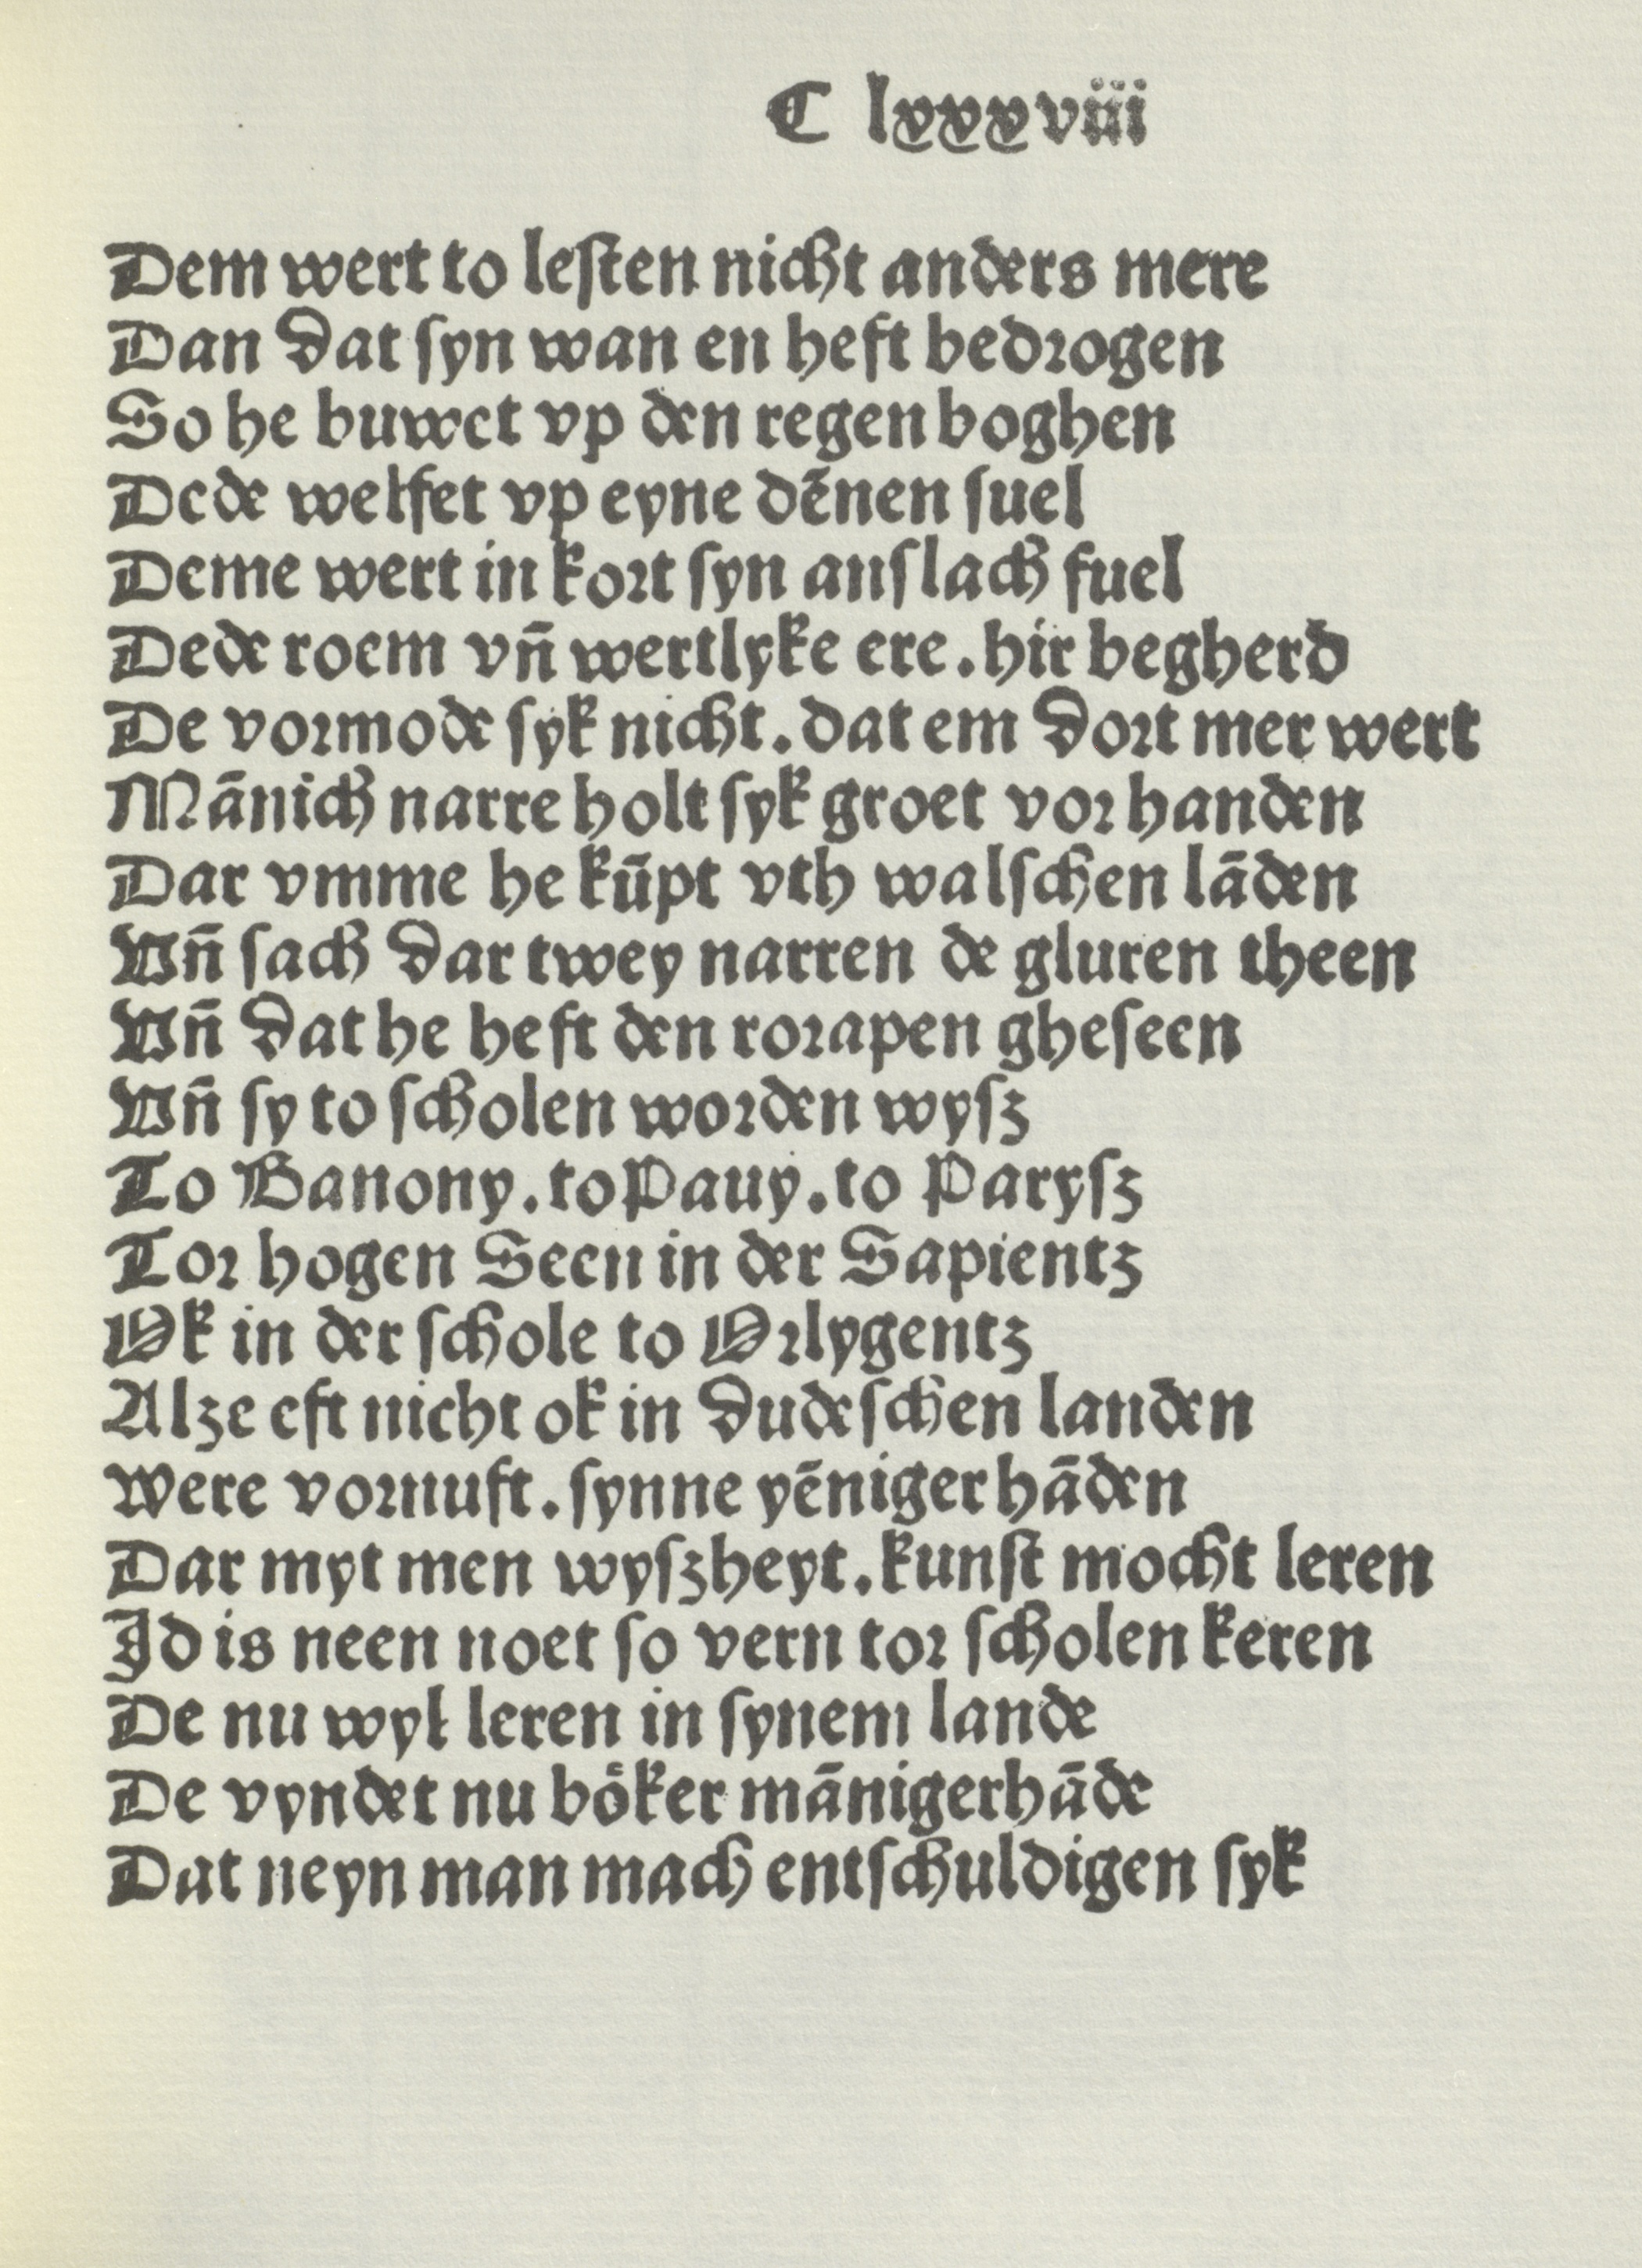 C lxxxviii
Dem wert to leſten nicht anders mere
Dan dat ſyn wan en heft bedrogen
So he buwet vp den regen boghen
Dede welfet vp eyne dēnen ſuel
Deme wert in kort ſyn anſlach fuel
Dede roem vn̄ wertlyke ere. hir begherd
De vormode ſyk nicht. dat em dort mer wert
Mānich narre holt ſyk groet vor handen
Dar vmme he kūpt vth walſchen lāden
Vn̄ ſach dar twey narren de gluren theen
Vn̄ dat he heft den rorapen gheſeen
Vn̄ ſy to ſcholen worden wyſz
To Banony. to Pauy. to Paryſz
Tor hogen Seen in der Sapientz
Ok in der ſchole to Orlygentz
Alze eft nicht ok in dudeſchen landen
Were vornuft. ſynne yēniger hāden
Dar myt men wyſzheyt. kunſt mocht leren
Id is neen noet ſo vern tor ſcholen keren
De nu wyl leren in ſynem lande
De vyndet nu boͤker mānigerhāde
Dat neyn man mach entſchuldigen ſyk